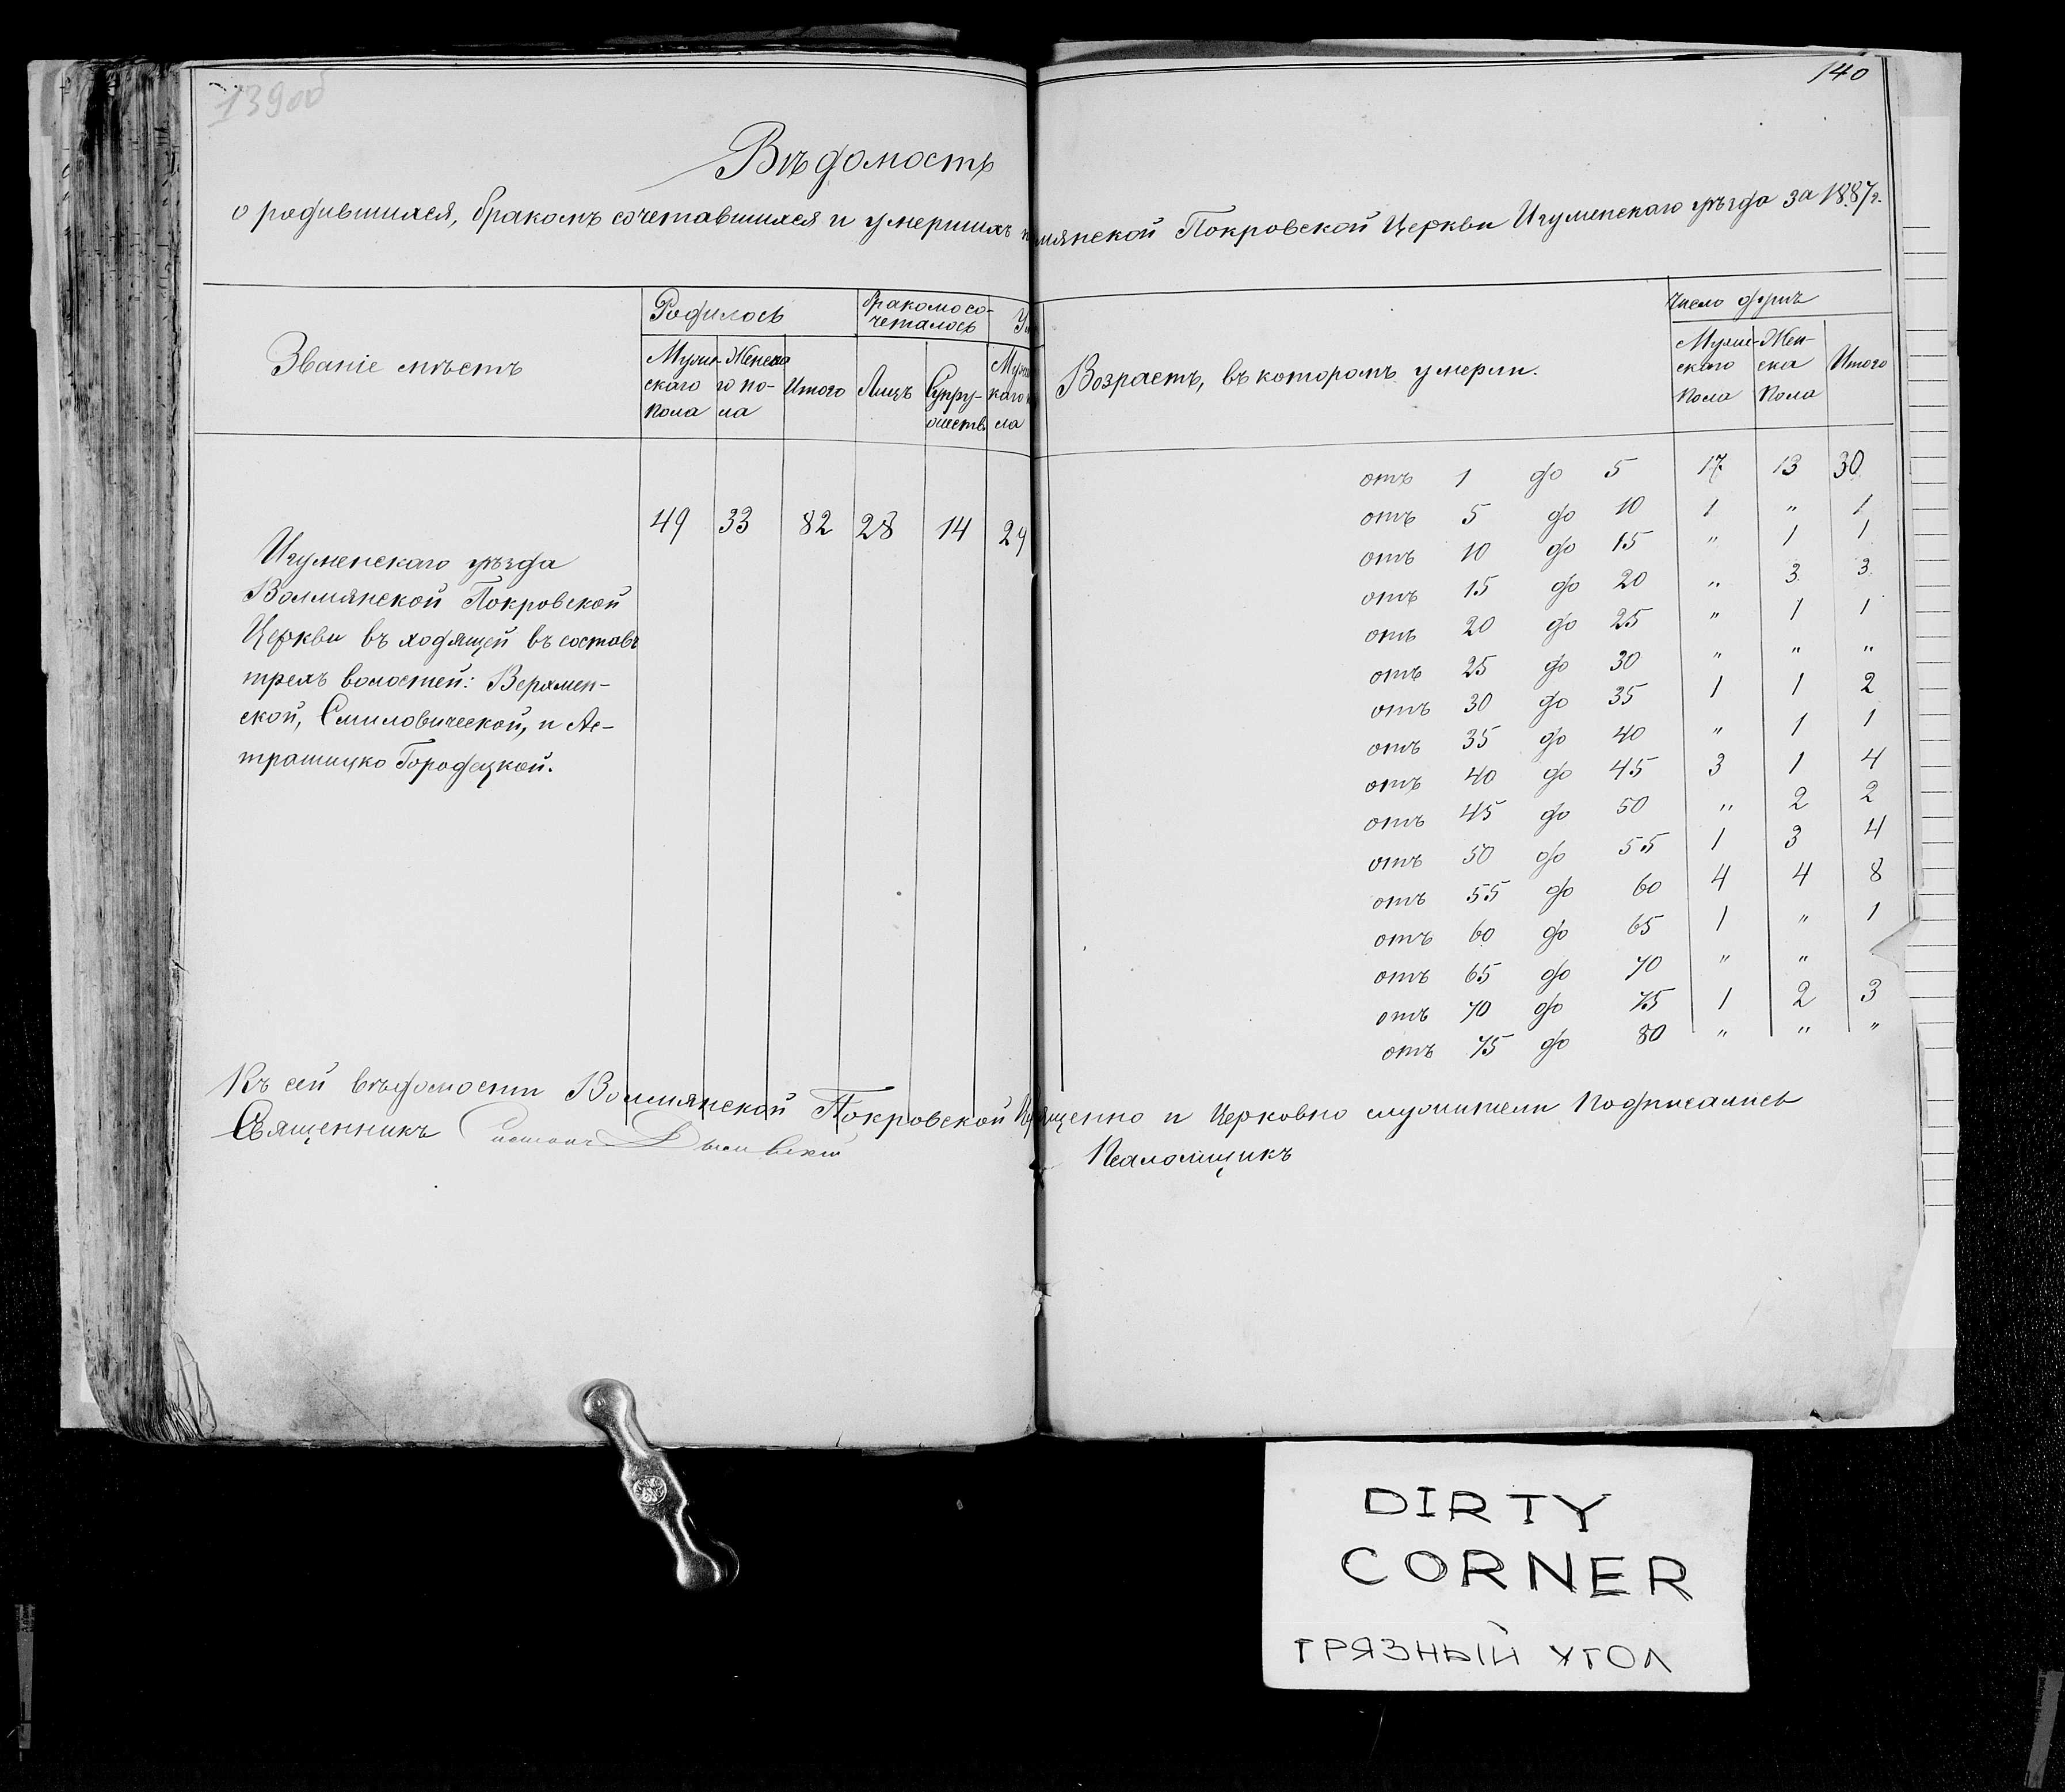 139об
140
Вѣдомость
о родившихся, бракомъ сочетавшихся и умершихъ мянской Покровской Церкви Игуменскаго уѣзда за 1887 г.
Званіе мѣстъ
Родилось
Мужескаго пола
Женскаго пола
Итого
бракомъ сочеталось
Лицъ
Супружествъ
Возрастъ, въ которомъ умерли.
Число душъ
Мужескаго Пола
Женска Пола
Итого
Игуменскаго уѣзда
Волмянской Покровской
Церкви въ ходящей въ составъ
трехъ волостей: Верхмен-
ской, Смиловической, и Ас-
трашицко Городецкой.
49 33 82 28 14 29
отъ 1 до 5 17 13 30
отъ 5 до 10 1 " 1
отъ 10 до 15 " 1 1
отъ 15 до 20 " 3 3
отъ 20 до 25 " 1 1
отъ 25 до 30 " " "
отъ 30 до 35 1 1 2
отъ 35 до 40 " 1 1
отъ 40 до 45 3 1 4
отъ 45 до 50 " 2 2
отъ 50 до 55 1 3 4
отъ 55 до 60 4 4 8
отъ 60 до 65 1 " 1
отъ 65 до 70 " "
отъ 70 до 75 1 2 3
отъ 75 до 80 " " "
Къ сей вѣдомости Волмянской Покровской щенно и Церковно служители подписались
Священникъ
Псаломщикъ
DIRTY
CORNER
ГРЯЗНЫЙ УГОЛ